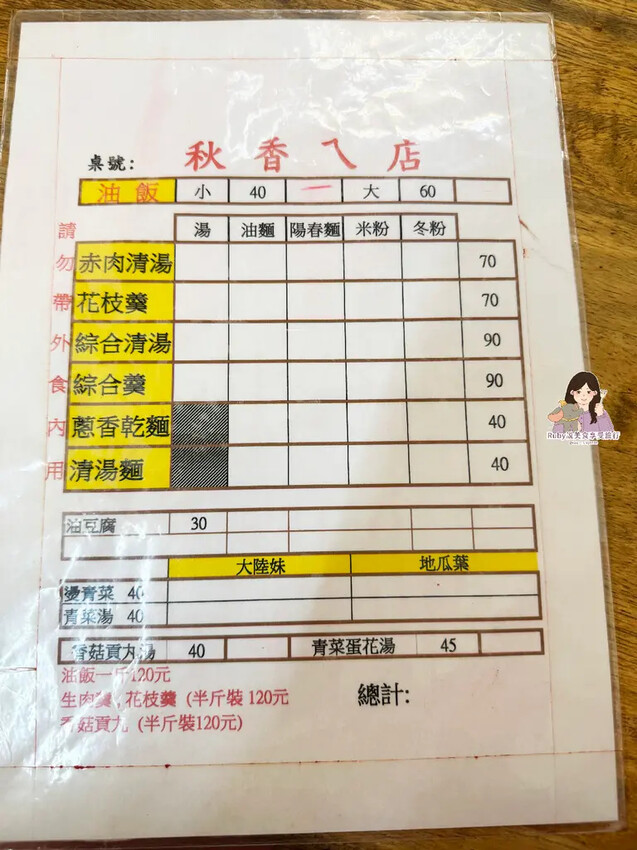 桌號: 秋香ㄟ店
油飯 小 40 一 大 60
湯 油麵 陽春麵 米粉 冬粉
請勿帶外食內用
赤肉清湯 70
花枝羹 70
綜合清湯 90
綜合羹 90
蔥香乾麵 40
清湯麵 40
油豆腐 30
大陸妹 地瓜葉
燙青菜 40
青菜湯 40
香菇貢丸湯 40 青菜蛋花湯 45
油飯一斤120元
生肉羹,花枝羹 (半斤裝 120元
香菇貢丸 (半斤裝120元)
總計:
Ruby說美食享受旅行